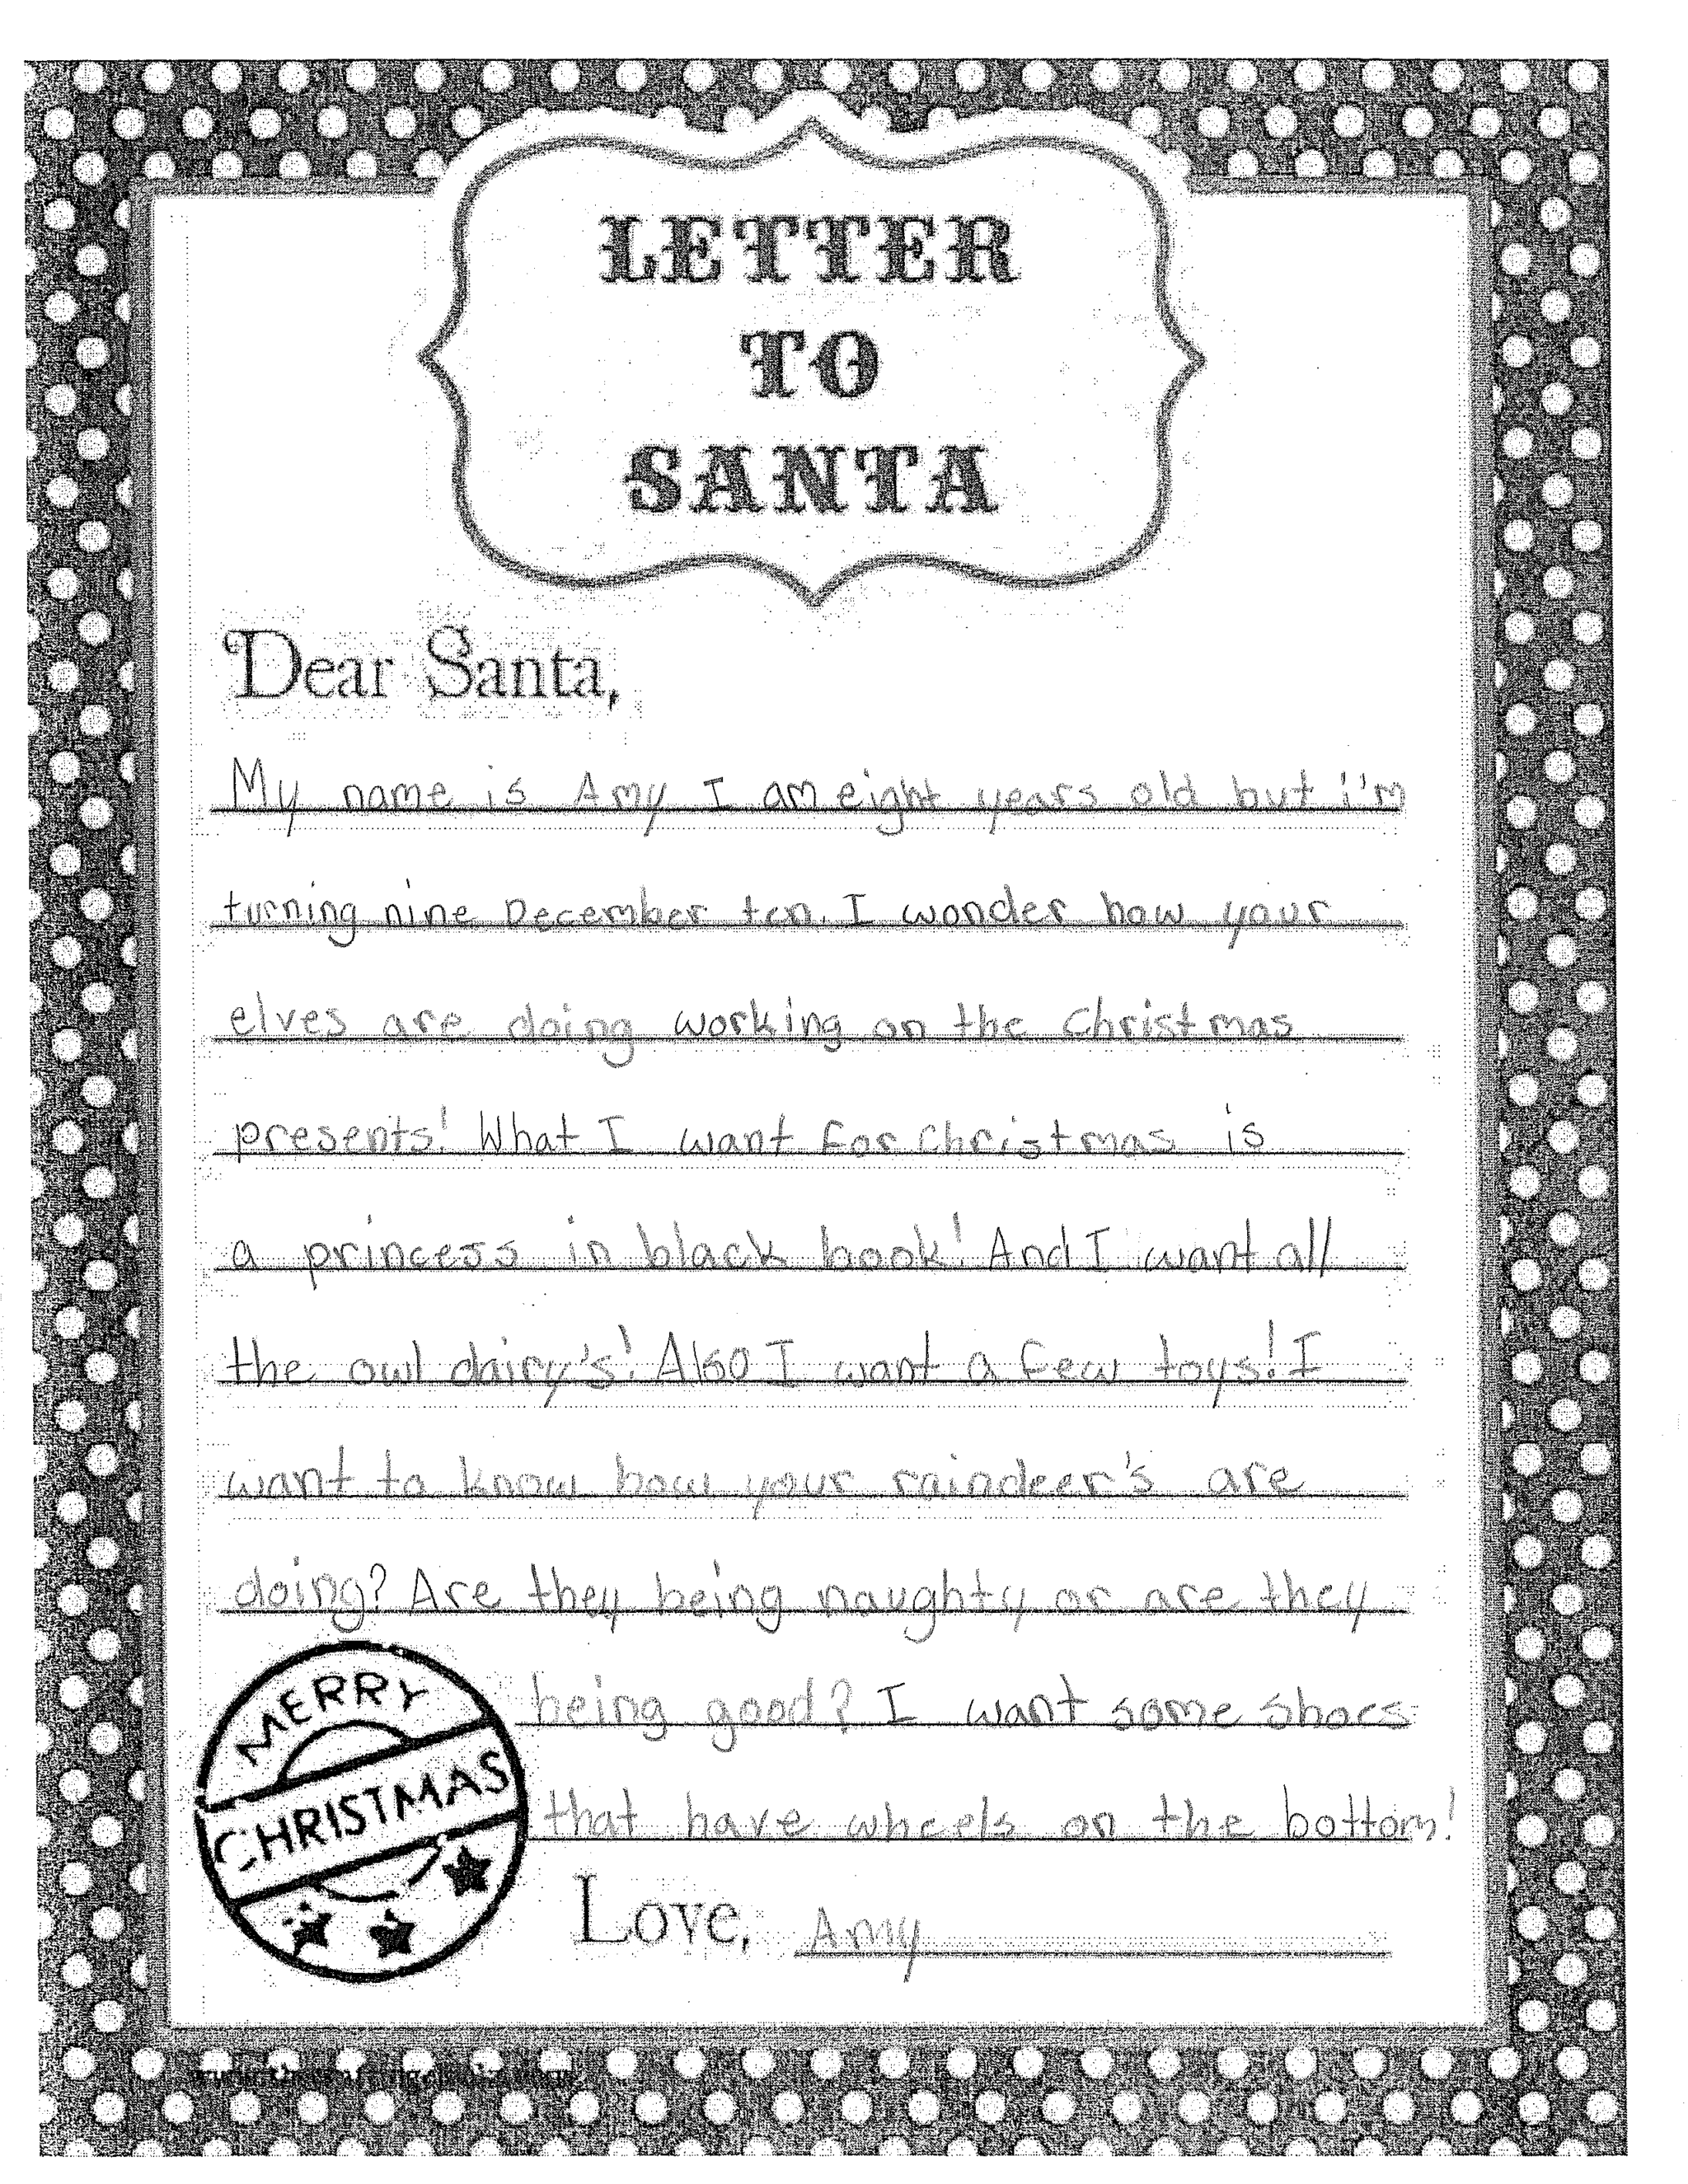 LETTER
TO
SANTA
Dear Santa,
My name is Amy I am eight years old but i'm
turning nine December ten. I wonder how your
elves are doing working on the christmas
presents! What I want for christmas is
a princess in black book! And I want all
the owl dairy's! Also I want a few toys! I
want to know how your raindeer's are
doing? Are they being naughty or are they
being good? I want some shoes
that have wheels on the bottom!
MERRY
CHRISTMAS
Love, Amy